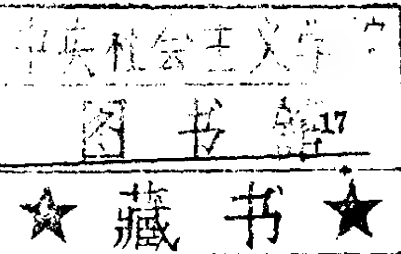 中央社会主义学
图书馆17
★藏书★